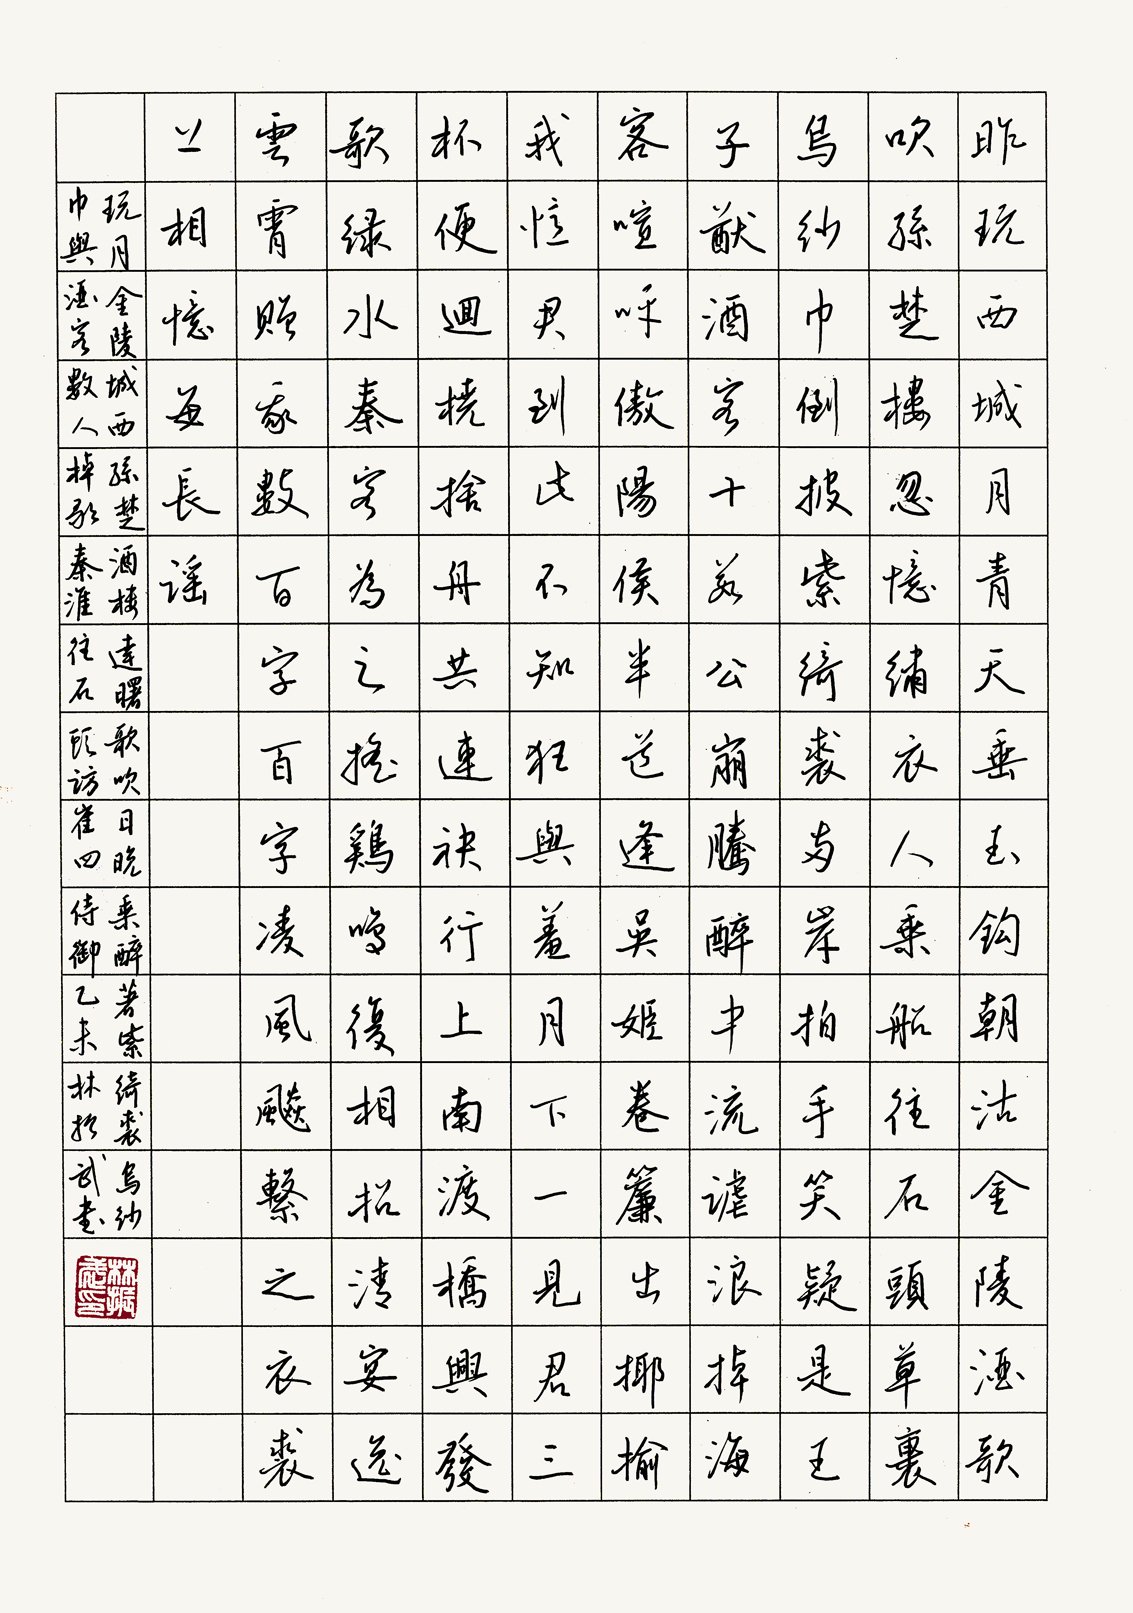 昨玩西城月青天垂玉鈎朝沽金陵酒歌
吹孫楚樓忽憶繡衣人乘船往石頭草裹
烏紗巾倒披紫綺裘兩岸拍手笑疑是王
子猷酒客十數公崩騰醉中流謔浪掉海
客喧呼傲陽侯半道逢吳姬卷簾出揶揄
我憶君到此不知狂與羞月下一見君三
杯便迴橈捨舟共連袂行上南渡橋興發
歌綠水秦客為之搖鷄鳴復相招清宴逸
雲霄贈我數百字百字凌風飈繫之衣裘
上相憶每長謠
玩月金陵城西孫楚酒樓達曙歌吹日晚乘醉著紫綺裘烏紗
巾與酒客數人棹歌秦淮往石頭訪崔四侍御乙未林振武書
林振武印